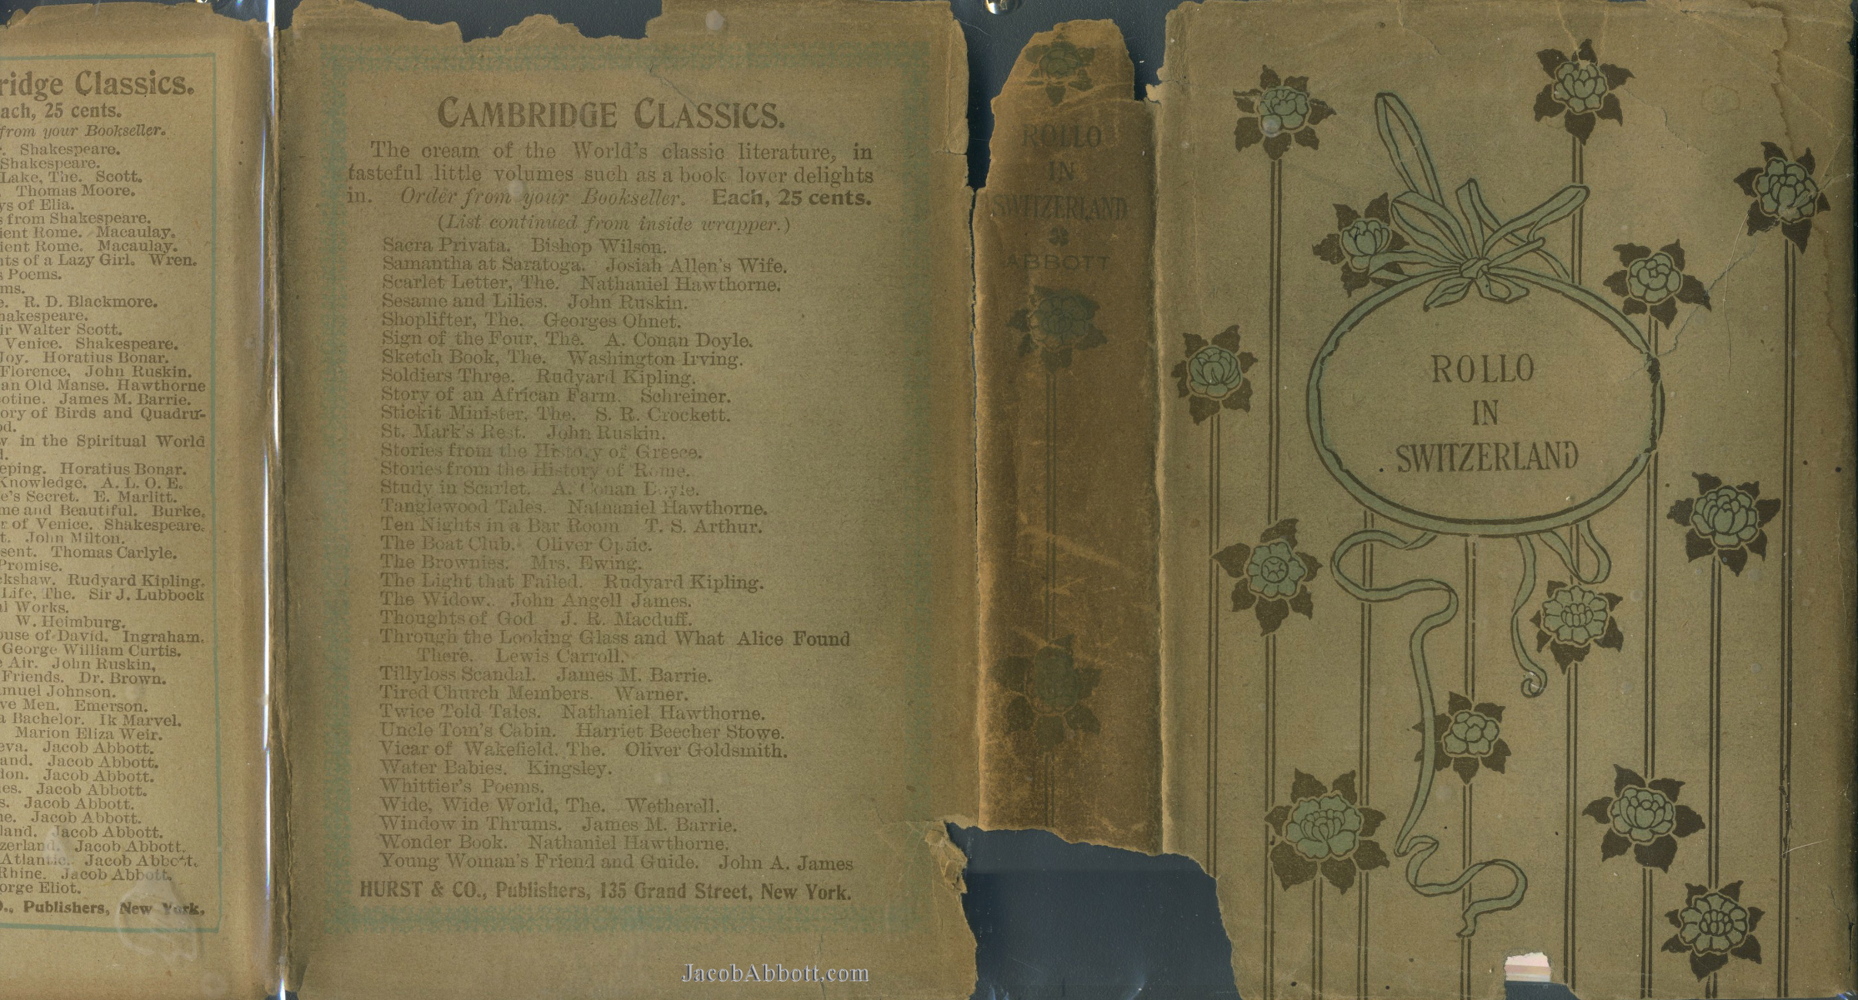 ridge Classics.
ach, 25 cents.
from your Bookseller.
. Shakespeare.
Shakespeare.
Lake, The. Scott.
. Thomas Moore.
ys of Elia.
s from Shakespeare.
ient Rome. Macaulay.
ient Rome. Macaulay.
hts of a Lazy Girl. Wren.
s Poems.
ms.
e. R. D. Blackmore.
hakespeare.
ir Walter Scott.
Venice. Shakespeare.
Joy. Horatius Bonar.
Florence, John Ruskin.
an Old Manse. Hawthorne
otine. James M. Barrie.
ory of Birds and Quadru-
od.
w in the Spiritual World
d.
eping. Horatius Bonar.
Knowledge. A. L. O. E.
e's Secret. E. Marlitt.
me and Beautiful. Burke.
r of Venice. Shakespeare.
t. John Milton.
sent. Thomas Carlyle.
Promise.
ckshaw. Rudyard Kipling.
Life, The. Sir J. Lubbock
al Works.
W. Heimburg.
ouse of David. Ingraham.
George William Curtis.
e Air. John Ruskin,
Friends. Dr. Brown.
muel Johnson.
ve Men. Emerson.
a Bachelor. Ik Marvel.
Marion Eliza Weir.
eva. Jacob Abbott.
and. Jacob Abbott.
don. Jacob Abbott.
es. Jacob Abbott.
s. Jacob Abbott.
ne. Jacob Abbott.
land. Jacob Abbott.
zerland. Jacob Abbott.
Atlantic. Jacob Abbott.
Rhine. Jacob Abbott.
orge Eliot.
O., Publishers, New York.
CAMBRIDGE CLASSICS.
The cream of the World's classic literature, in
tasteful little volumes such as a book lover delights
in. Order from your Bookseller. Each, 25 cents.
(List continued from inside wrapper.)
Sacra Privata. Bishop Wilson.
Samantha at Saratoga. Josiah Allen's Wife.
Scarlet Letter, The. Nathaniel Hawthorne.
Sesame and Lilies. John Ruskin.
Shoplifter, The. Georges Ohnet.
Sign of the Four, The. A. Conan Doyle.
Sketch Book, The. Washington Irving.
Soldiers Three. Rudyard Kipling.
Story of an African Farm. Schreiner.
Stickit Minister, The. S. R. Crockett.
St. Mark's Rest. John Ruskin.
Stories from the History of Greece.
Stories from the History of Rome.
Study in Scarlet. A. Conan Doyle.
Tanglewood Tales. Nathaniel Hawthorne.
Ten Nights in a Bar Room T. S. Arthur.
The Boat Club. Oliver Optic.
The Brownies. Mrs. Ewing.
The Light that Failed. Rudyard Kipling.
The Widow. John Angell James.
Thoughts of God J. R. Macduff.
Through the Looking Glass and What Alice Found
There. Lewis Carroll.
Tillyloss Scandal. James M. Barrie.
Tired Church Members. Warner.
Twice Told Tales. Nathaniel Hawthorne.
Uncle Tom's Cabin. Harriet Beecher Stowe.
Vicar of Wakefield. The. Oliver Goldsmith.
Water Babies. Kingsley.
Whittier's Poems.
Wide, Wide World, The. Wetherell.
Window in Thrums. James M. Barrie.
Wonder Book. Nathaniel Hawthorne.
Young Woman's Friend and Guide. John A. James
HURST & CO., Publishers, 135 Grand Street, New York.
JacobAbbott.com
ROLLO
IN
SWITZERLAND
ABBOTT
ROLLO
IN
SWITZERLAND